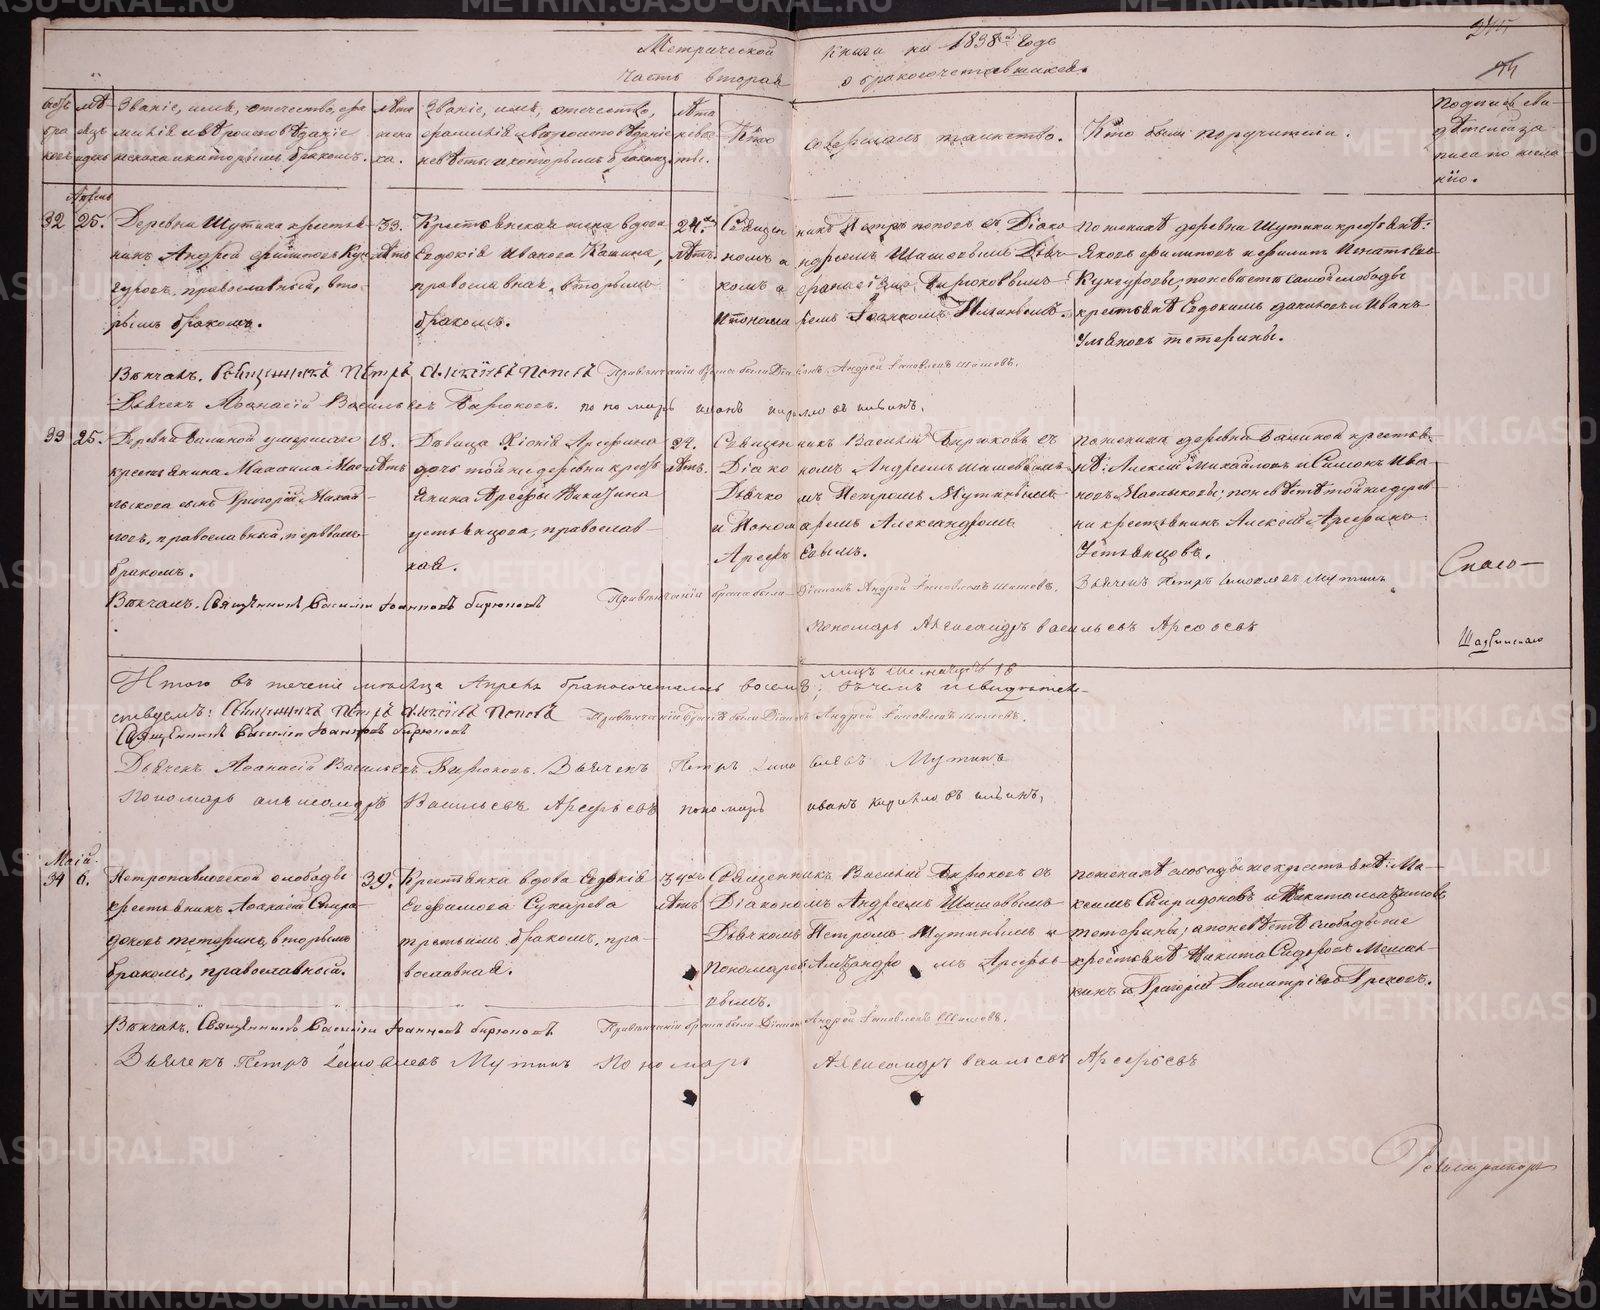 Метрической книги на 1838й годъ
часть вторая о бракосочетавшихся.
Званіе, имя, отечество, фа-
милія и вѣроисповѣданіе
жениха и которымъ бракомъ.
лѣта
жени
ха.
Званіе, имя, отечество,
фамилія и вѣроисповѣданіе
невѣсты и которымъ бракомъ.
лѣта
невѣс
ты.
Кто совершалъ таинство.
Кто были поручители.
Подпись сви-
дѣтелей за
пись по жела
нію.
Апрель
32 25. Деревни Шутина крестья-
нинъ Андрей Филиповъ Кун-
гуровъ, православный, вто-
рымъ бракомъ.
33.
лѣтъ
Крестьянская жена вдова
Евдокія Иванова Кашина,
православная, вторымъ
бракомъ.
24.
лѣтъ.
Священникъ Петръ Поповъ съ Діако
номъ Андреемъ Шашовымъ Дьяч-
комъ Афанасіемъ Бирюковымъ
и пономаремъ Іоанномъ Ильинымъ.
По женихѣ деревни Шутина крестьянѣ:
Яковъ Филиповъ и Филипъ Игнатьевъ
Кунгуровы; по невѣстѣ самой слободы
крестьянѣ Евдокимъ Даниловъ и Иванъ
Ульяновъ Тетерины.
Вѣнчалъ. Священникъ Петръ Алексѣевъ Поповъ При вѣнчаніи брака были Діаконъ Андрей Іаковлевъ Шашовъ.
Дьячекъ Афанасій Васильевъ Бирюковъ. пономарь иванъ кирилловъ ильинъ.
33 25. Деревни Галиной умершаго
крестьянина Михаила Мас-
лыкова сынъ Григорій Михай-
ловъ, православный, первымъ
бракомъ.
18.
лѣтъ
Дѣвица Хіонія Арефина
дочь той же деревни кресть
янина Арефы Никитина
Устьянцова, православ-
ная.
22.
лѣтъ.
Священникъ Василій Бирюковъ съ
Діакономъ Андреемъ Шашовымъ
Дьячкомъ Петромъ Мутинымъ
и Пономаремъ Александромъ
Арефьевымъ.
По женихѣ деревни Галиной крестья-
нѣ: Алексѣй Михайловъ и Симонъ Ива-
новъ Маслыковы; по невѣстѣ той же дерев-
ни крестьянинъ Алексѣй Арефинъ
Устьянцовъ.
Дьячекъ Петръ Іаковлевъ Мутинъ
Вѣнчалъ. Священникъ Василій Іоанновъ Бирюковъ При вѣнчаніи брака были Діаконъ Андрей Іаковлевъ Шашовъ.
Пономарь Александръ Васильевъ Арефьевъ
Спасо-
Шадринскаго
Итого въ теченіе мѣсяца Апреля бракосочеталось восемь; въ чемъ и свидѣтель-
ствуемъ: Священникъ Петръ Алексѣевъ Поповъ При вѣнчаніи браковъ были Діаконъ Андрей Іаковлевъ Шашовъ.
Священникъ Василій Іоанновъ Бирюковъ
Дьячекъ Афанасій Васильевъ Бирюковъ. Дьячекъ Петръ Іаковлевъ Мутинъ
Пономарь александръ Васильевъ Арефьевъ пономарь иванъ кирилловъ ильинъ,
Маій
34 6. Петропавловской слободы
крестьянинъ Афанасій Спири-
доновъ Тетеринъ, вторымъ
бракомъ, православный.
39.
Крестьянка вдова Евдокія
Ефимова Сухарева
третьимъ бракомъ, пра-
вославная.
34
лѣтъ
Священникъ Василій Бирюковъ съ
Діакономъ Андреемъ Шашовымъ
Дьячкомъ Петромъ Мутинымъ и
Пономаремъ Александромъ Арефье-
вымъ.
По женихѣ слободы же крестьянѣ: Ма-
ксимъ Спиридоновъ и Никита
Тетерины; а по невѣстѣ слободы же
крестьянѣ Никита Сидоровъ
и Григорій Димитріевъ Греховъ.
Вѣнчалъ. Священникъ Василій Іоанновъ Бирюковъ При вѣнчаніи брака были Діаконъ Андрей Іаковлевъ Шашовъ.
Дьячекъ Петръ Іаковлевъ Мутинъ Пономарь Александръ Васильевъ Арефьевъ
METRIKI.GASO-URAL.RU